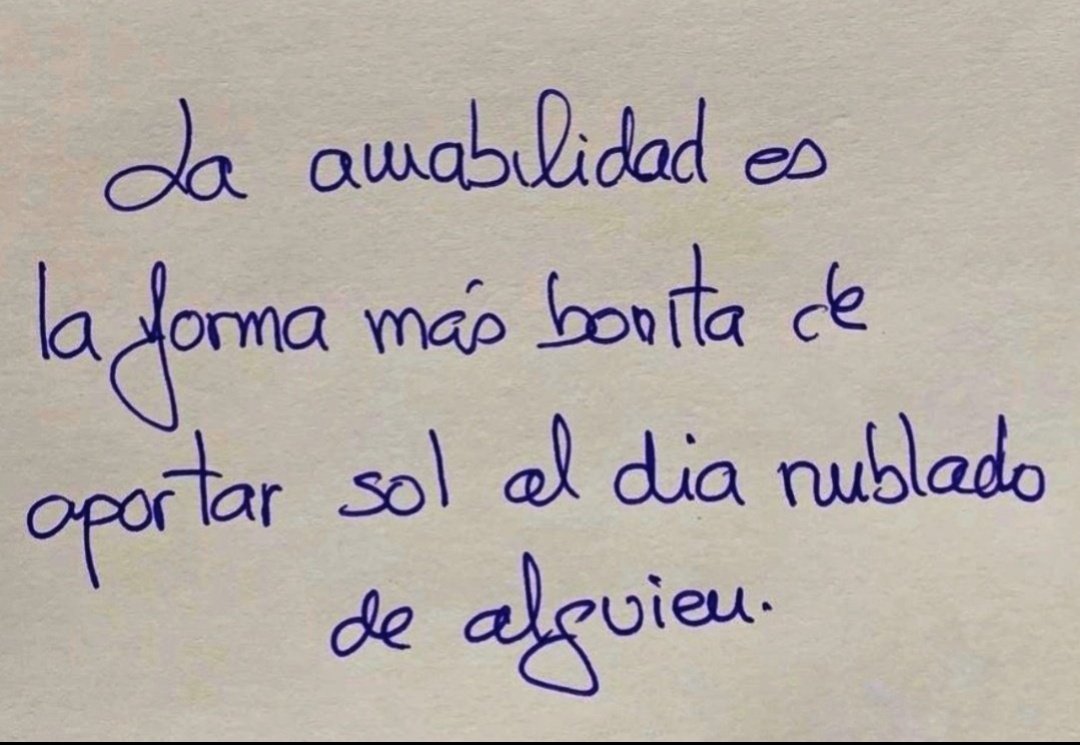 La amabilidad es
la forma más bonita de
aportar sol al dia nublado
de alguien.